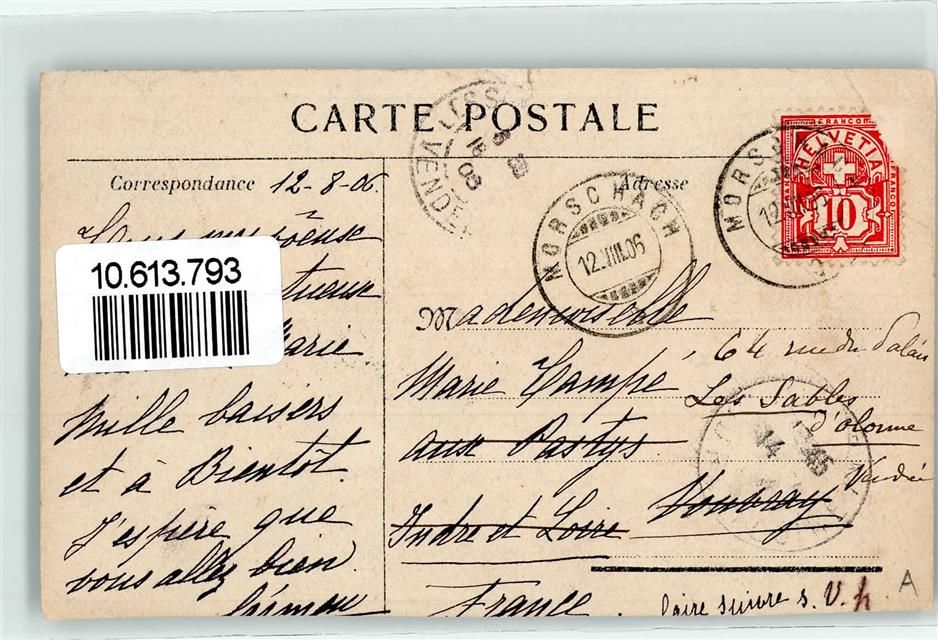 CARTE POSTALE
Correspondance 12-8-06.
Adresse
FRANCO
HELVETIA
10
MORSCHACH
12.VIII.06
VENDÉE
10.613.793
Marie
Mille baisers
et à Bientôt.
J'espère que
vous allez bien.
Mademoiselle
Marie Campé
aux Pastys
Vouvray
Indre et Loire
France
64 rue du Palais
Les Sables
d'olonne
Vendée
faire suivre s. V. p.
A